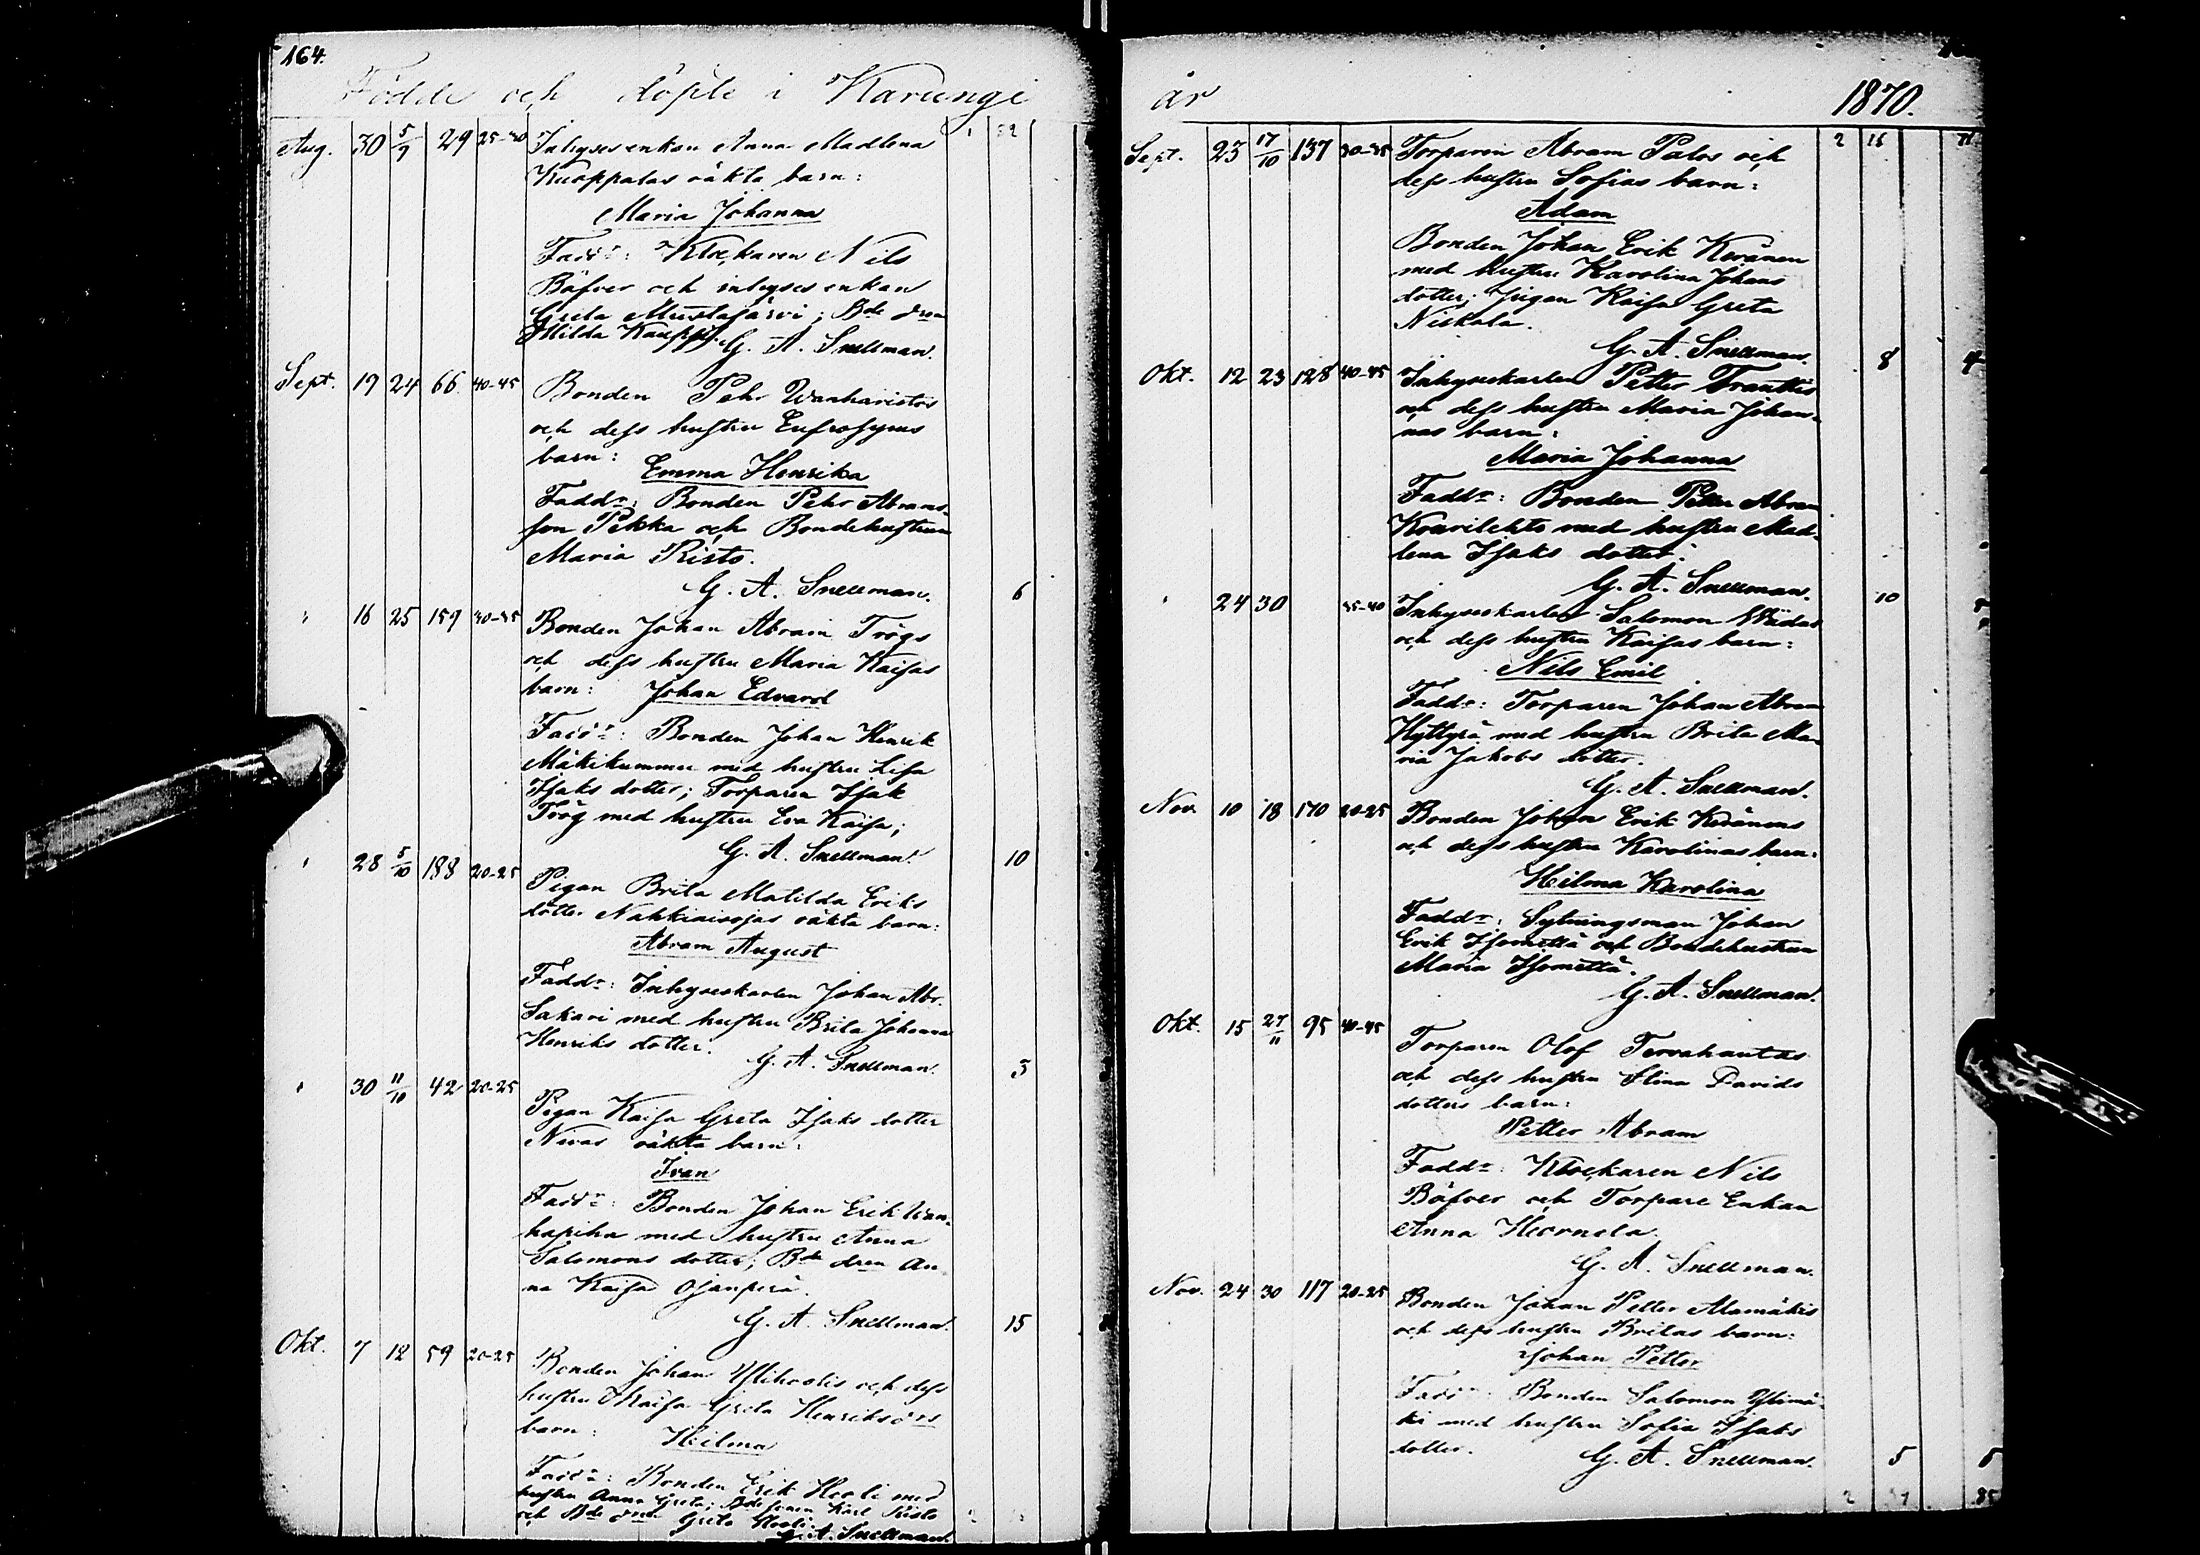 164.
Födde och döpte i Karungi
Aug. 30 5/9 29 25-30 Inhyses enkan Anna Madlena
Kuoppalas oäkta barn:
Maria Johanna
Fadd:r: Klockaren Nils
Bäfver och inhyses enkan
Greta Mustajärvi; Bde dren
Hilda Kauppi.
G. A. Snellman.
Sept. 19 24 66 40-45
Bonden Pehr Wanharistos
och dess hustru Eufrosyns
barn:
Emma Henrika
Fadd:r: Bonden Pehr Abrams-
son Pekka och Bondehustrun
Maria Risto.
G. A. Snellman. 6
" 16 25 159 30-35
Bonden Johan Abram Trögs
och dess hustru Maria Kaisas
barn: Johan Edvard
Fadd:r: Bonden Johan Henrik
Mäkikummu med hustru Lisa
Isaks dotter; Torparen Isak
Trög med hustru Eva Kaisa;
G. A. Snellman. 10
" 28 5/10 188 20-25
Pigan Brita Matilda Eriks
dotter Nahkiaisojas oäkta barn:
Abram August
Fadd:r: Inhyseskarlen Johan Abr.
Sakari med hustru Brita Johanna
Henriks dotter.
G. A. Snellman. 3
" 30 11/10 42 20-25
Pigan Kaisa Greta Isaks dotter
Nivas oäkta barn:
Ivan
Fadd:r: Bonden Johan Erik Wan-
hapiha med hustru Anna
Salomons dotter; Bde dren An-
na Kaisa Ojanperä.
G. A. Snellman. 15
Okt. 7 12 59 20-25
Bonden Johan Ylihoolis och dess
hustru Maija Greta Henriksdrs
barn: Hilma
Fadd:r: Bonden Erik Hooli med
hustru Anna Greta; Bde sonen Karl Risto
och Bde dren Greta Hooli.
G. A. Snellman.
år 1870.
Sept. 23 17/10 137 30-35 Torparen Abram Palos och 2 16
dess hustru Sofias barn:
Adam
Bonden Johan Erik Keränen
med hustru Karolina Johans
dotter; Pigan Kaisa Greta
Niskala.
G. A. Snellman. 8 4
Okt. 12 23 128 40-45 Inhyseskarlen Petter Franttis
och dess hustru Maria Johan-
nas barn:
Maria Johanna
Fadd:r: Bonden Petter Abram
Kourilehto med hustru Mad-
lena Isaks dotter.
G. A. Snellman. 10 5
" 24 30 35-40 Inhyseskarlen Salomon
och dess hustru Kaisas barn:
Nils Emil
Fadd:r: Torparen Johan Abram
Hyttyrä med hustru Brita Ma-
ria Jakobs dotter.
G. A. Snellman.
Nov. 10 18 170 20-25 Bonden Johan Erik Keränens
och dess hustru Karolinas barn:
Hilma Karolina
Fadd:r: Sytningsman Johan
Erik Isomettä och Bondehustrun
Maria Isomettä.
G. A. Snellman.
Okt. 15 27/11 95 40-45
Torparen Olof Tervahautas
och dess hustru Elina Davids
dotters barn:
Petter Abram
Fadd:r: Klockaren Nils
Bäfver och Torpare Enkan
Anna Heornela.
G. A. Snellman.
Nov. 24 30 117 20-25
Bonden Johan Petter Alamäkis
och dess hustru Britas barn:
Johan Petter
Fadd:r: Bonden Salomon Ylimä-
ki med hustru Sofia Isaks
dotter.
G. A. Snellman. 5 5